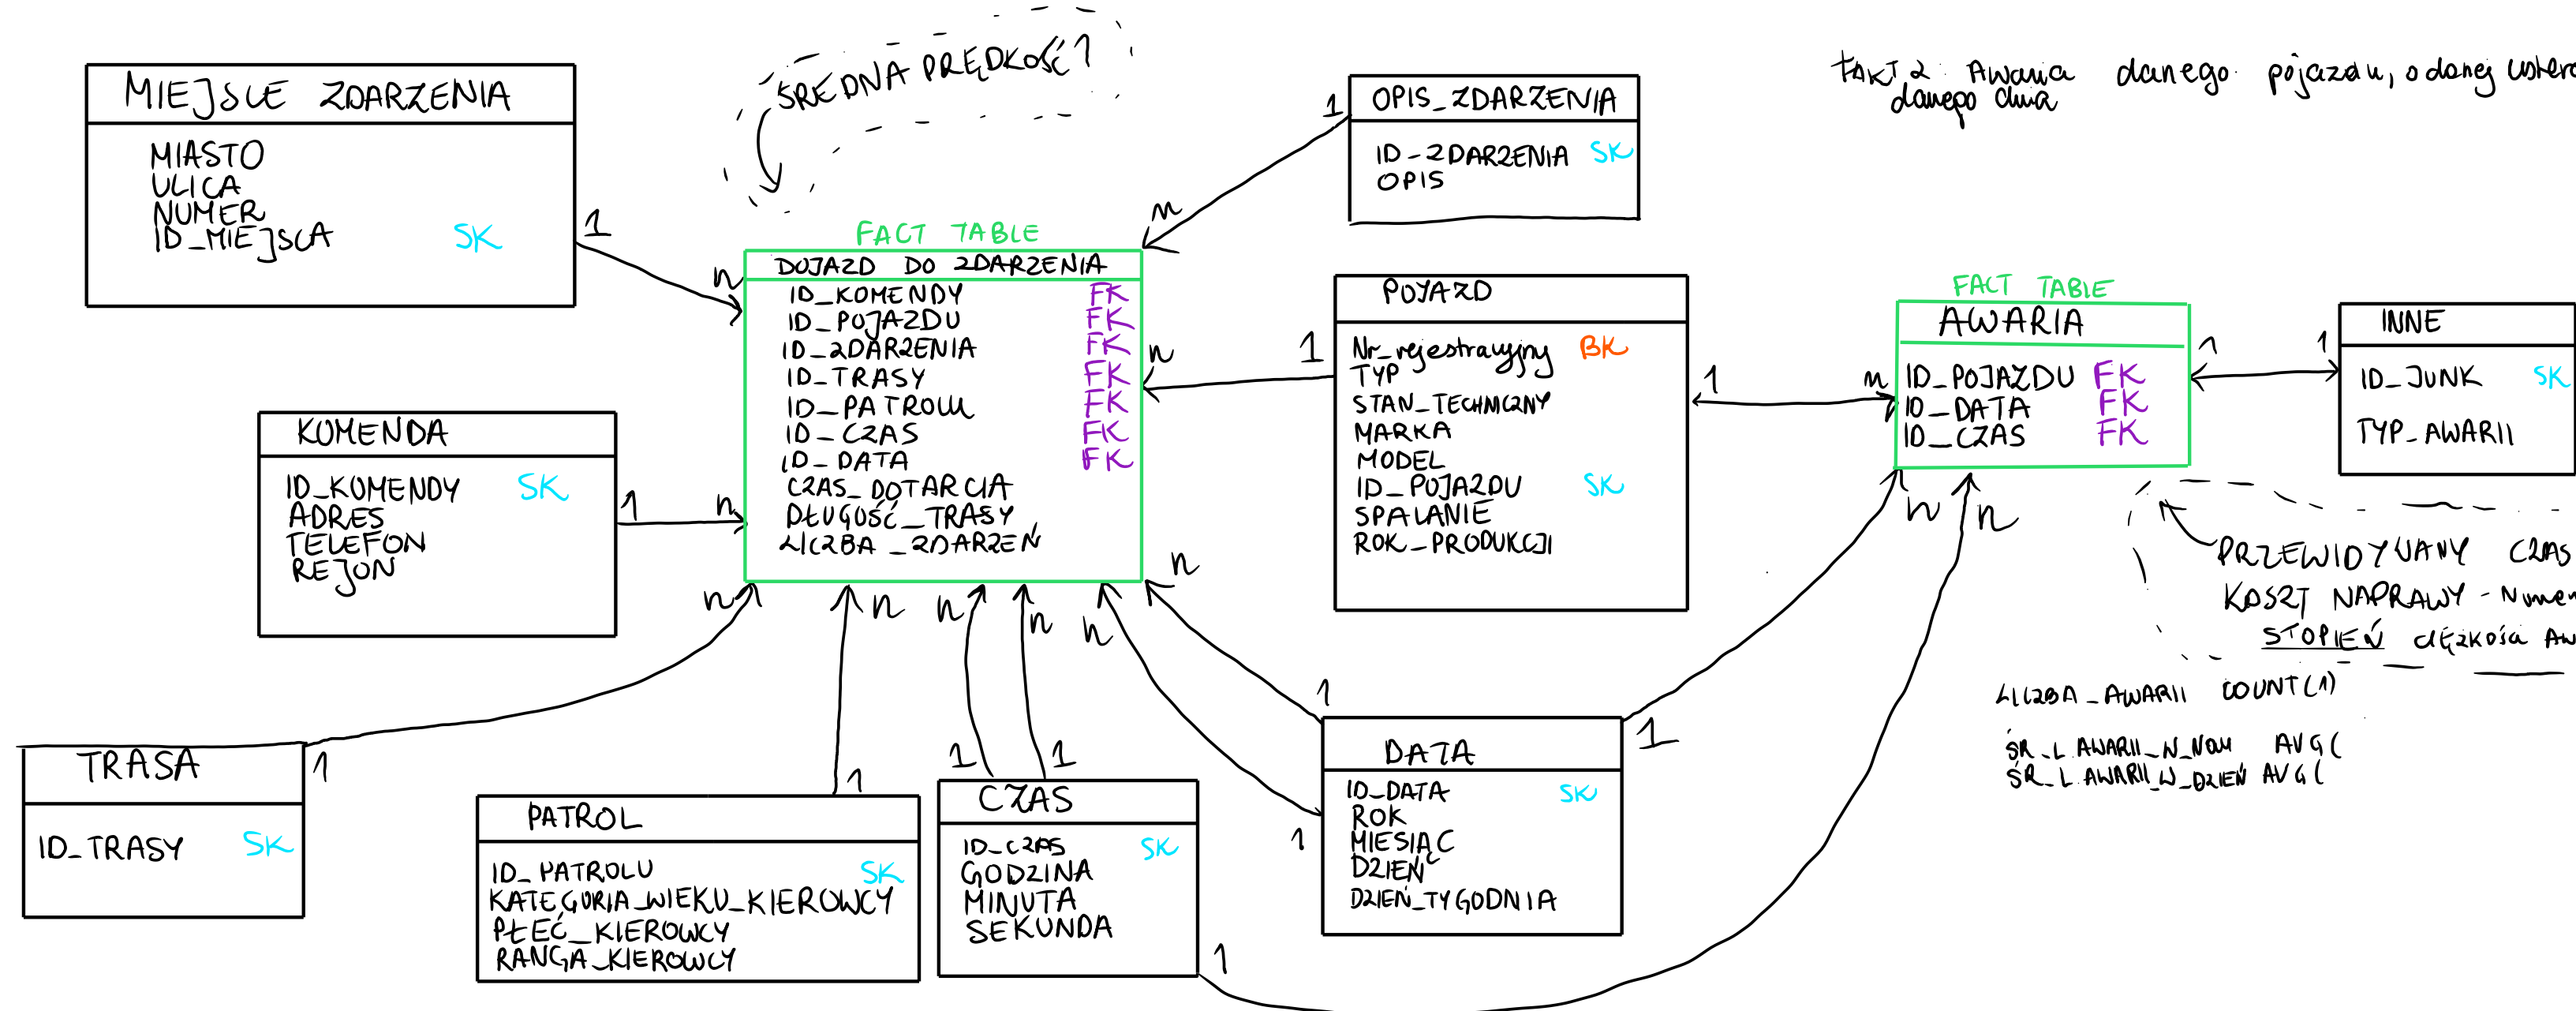 MIEJSCE ZDARZENIA
MIASTO
ULICA
NUMER
ID_MIEJSCA SK
1
n
ŚREDNA PRĘDKOŚĆ
FACT TABLE
DOJAZD DO ZDARZENIA
ID_KOMENDY FK
ID_POJAZDU FK
ID_ZDARZENIA FK
ID_TRASY FK
ID_PATROLU FK
ID_CZAS FK
ID_DATA FK
CZAS_DOTARCIA
DŁUGOŚĆ_TRASY
LICZBA_ZDARZEŃ
1
n
OPIS_ZDARZENIA
ID_ZDARZENIA SK
OPIS
FAKT 2 Awaria danego pojazdu, o danej
danego dnia
n
1
POJAZD
Nr_rejestracyjny BK
TYP
STAN_TECHNICZNY
MARKA
MODEL
ID_POJAZDU SK
SPALANIE
ROK_PRODUKCJI
1
n
FACT TABLE
AWARIA
ID_POJAZDU FK
ID_DATA FK
ID_CZAS FK
1
1
INNE
ID_JUNK SK
TYP_AWARII
KOMENDA
ID_KOMENDY SK
ADRES
TELEFON
REJON
1
n
n
n
n
n
n
n
n
n
PRZEWIDYWANY CZAS
KOSZT NAPRAWY -
STOPIEŃ ciężkości
LICZBA_AWARII COUNT(1)
ŚR_L.AWARII_W_ AVG(
ŚR_L.AWARII_W_DZIEŃ AVG(
TRASA
ID_TRASY SK
1
PATROL
ID_PATROLU SK
KATEGORIA_WIEKU_KIEROWCY
PŁEĆ_KIEROWCY
RANGA_KIEROWCY
1
1
1
CZAS
ID_CZAS SK
GODZINA
MINUTA
SEKUNDA
1
1
1
DATA
ID_DATA SK
ROK
MIESIĄC
DZIEŃ
DZIEŃ_TYGODNIA
1